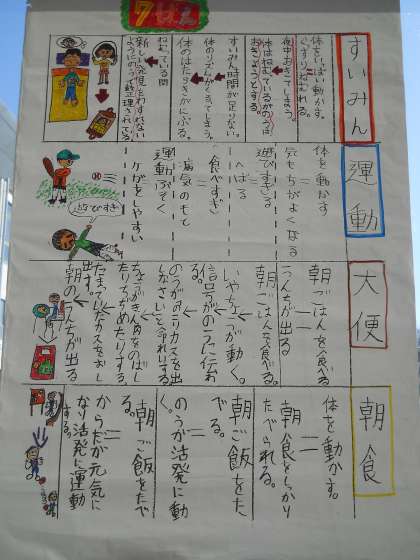 すいみん
体をいっぱい動かす。
ぐっすりねむれる。
夜中おきてしまう。
体はねむっているがのうは
おきようとする。
すいみん時間が足りない。
体のリズムがくるってしまう。
体のはたらきがにぶる。
ねむっている間
新しい発見をわすれない
ようにのうで整理されてる。
運動
体を動かす
気もちがよくなる
遊びすぎる
へばる
食べすぎ
病気のもと
運動ぶそく
ケガをしやすい
遊びすぎ
大便
朝ごはんを食べる
うんちが出る
朝ごはんを食べる。
いやちょうが動く。
信号がのうに伝わ
る。
のうがみカスを出
しなさいと命れいする
ちょうがきん肉をのばし
たりちぢめたりする。
たまっていたカスをおし
出す。
朝のうんちが出る
朝食
体を動かす。
朝食をしっかり
たべられる。
朝ご飯をた
べる。
のうが活発に動
く。
朝ご飯をたべ
る。
からだが元気に
なり活発に運動
する。